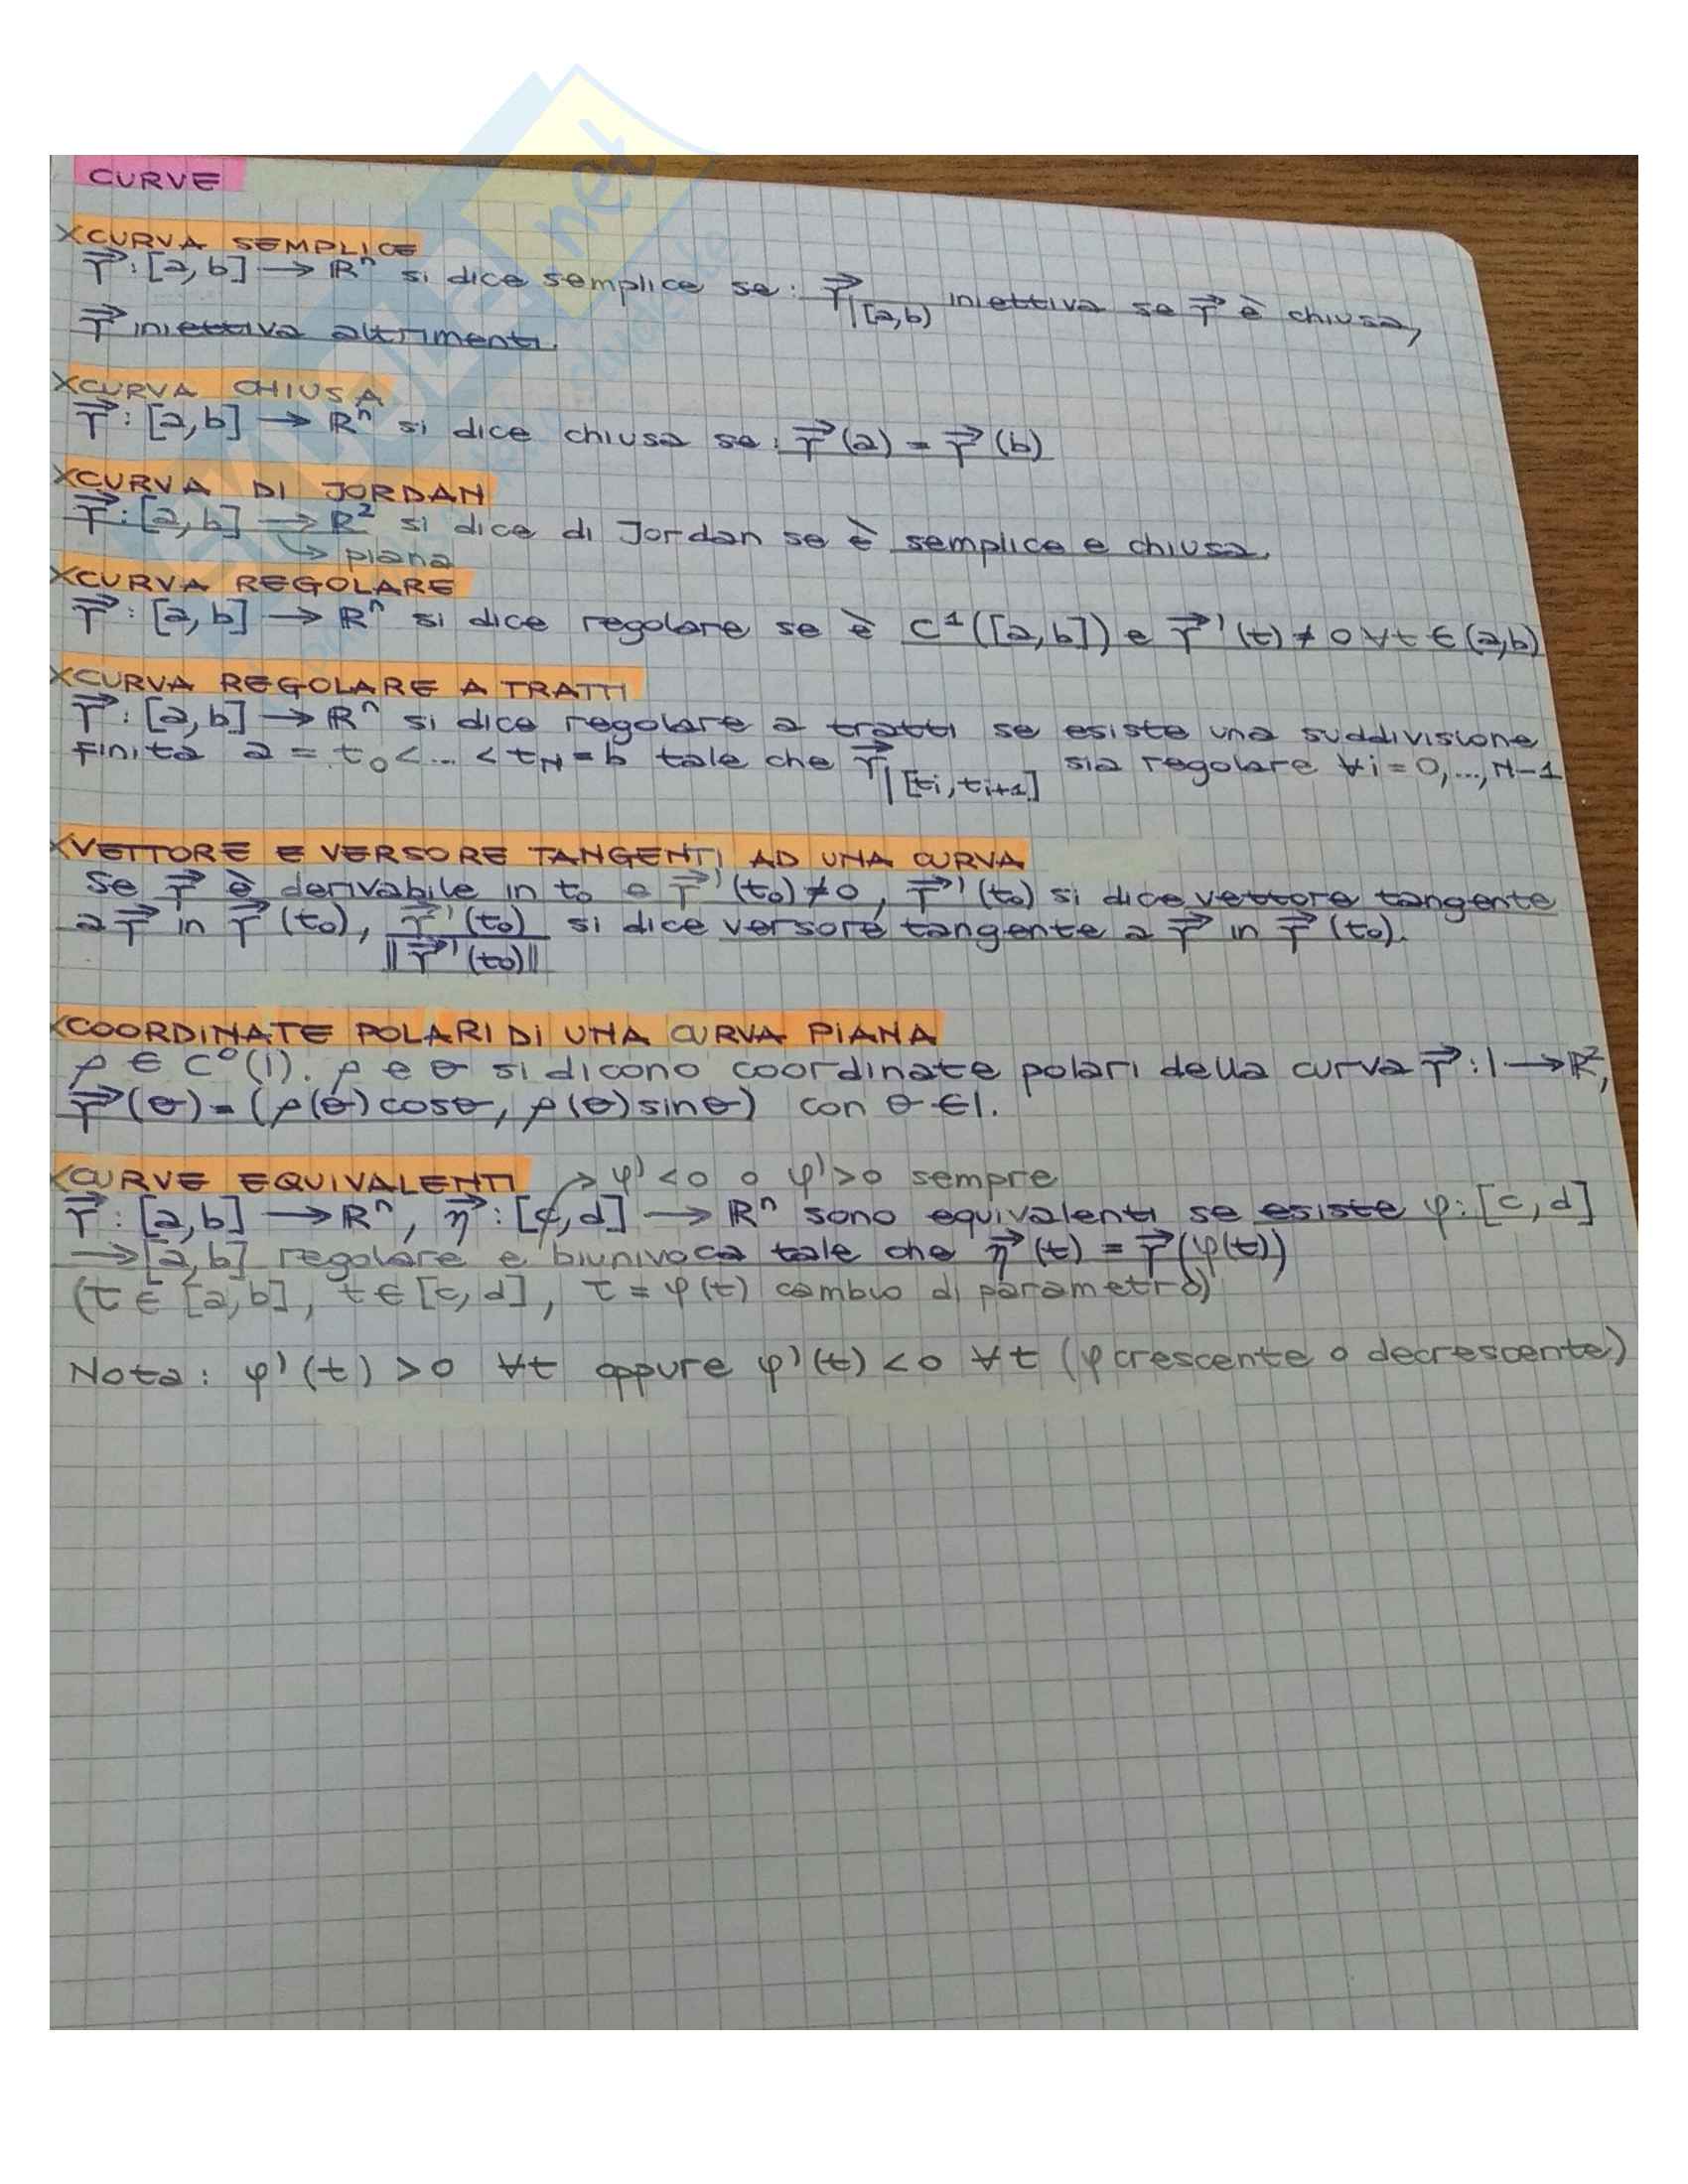 CURVE
XCURVA SEMPLICE
γ⃗ : [a,b] → ℝⁿ si dice semplice se: γ⃗|[a,b) iniettiva se γ⃗ è chiusa,
γ⃗ iniettiva altrimenti.
XCURVA CHIUSA
γ⃗ : [a,b] → ℝⁿ si dice chiusa se: γ⃗(a) = γ⃗(b)
XCURVA DI JORDAN
γ⃗ : [a,b] → ℝ² si dice di Jordan se è semplice e chiusa.
↳ piana
XCURVA REGOLARE
γ⃗ : [a,b] → ℝⁿ si dice regolare se è C¹([a,b]) e γ⃗'(t) ≠ 0 ∀t ∈ (a,b)
XCURVA REGOLARE A TRATTI
γ⃗ : [a,b] → ℝⁿ si dice regolare a tratti se esiste una suddivisione
finita a = t₀ < ... < t_N = b tale che γ⃗|[ti, ti+1] sia regolare ∀i = 0,...,N-1
XVETTORE E VERSORE TANGENTI AD UNA CURVA
Se γ⃗ è derivabile in t₀ e γ⃗'(t₀) ≠ 0, γ⃗'(t₀) si dice vettore tangente
a γ⃗ in γ⃗(t₀), γ⃗'(t₀)/‖γ⃗'(t₀)‖ si dice versore tangente a γ⃗ in γ⃗(t₀).
XCOORDINATE POLARI DI UNA CURVA PIANA
ρ ∈ C⁰(I). ρ e θ si dicono coordinate polari della curva γ⃗ : I → ℝ²,
γ⃗(θ) = (ρ(θ)cosθ, ρ(θ)sinθ) con θ ∈ I.
XCURVE EQUIVALENTI → φ' < 0 o φ' > 0 sempre
γ⃗ : [a,b] → ℝⁿ, η⃗ : [c,d] → ℝⁿ sono equivalenti se esiste φ : [c,d]
→ [a,b] regolare e biunivoca tale che η⃗(t) = γ⃗(φ(t))
(τ ∈ [a,b], t ∈ [c,d], τ = φ(t) cambio di parametro)
Nota: φ'(t) > 0 ∀t oppure φ'(t) < 0 ∀t (φ crescente o decrescente)